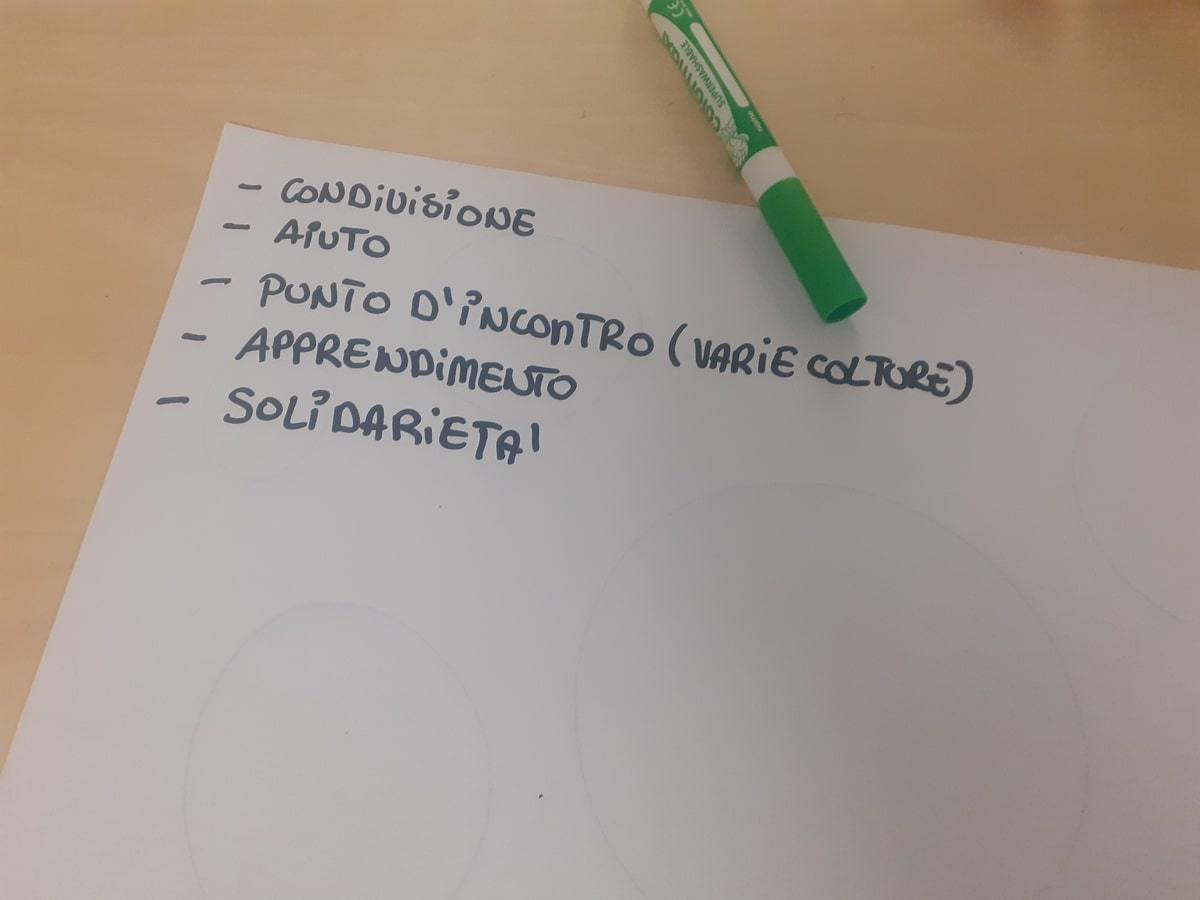 - CONDIVISIONE
- AIUTO
- PUNTO D'INCONTRO (VARIE COLTURE)
- APPRENDIMENTO
- SOLIDARIETA'
colormaxi
SUPERWASHABLE
CE